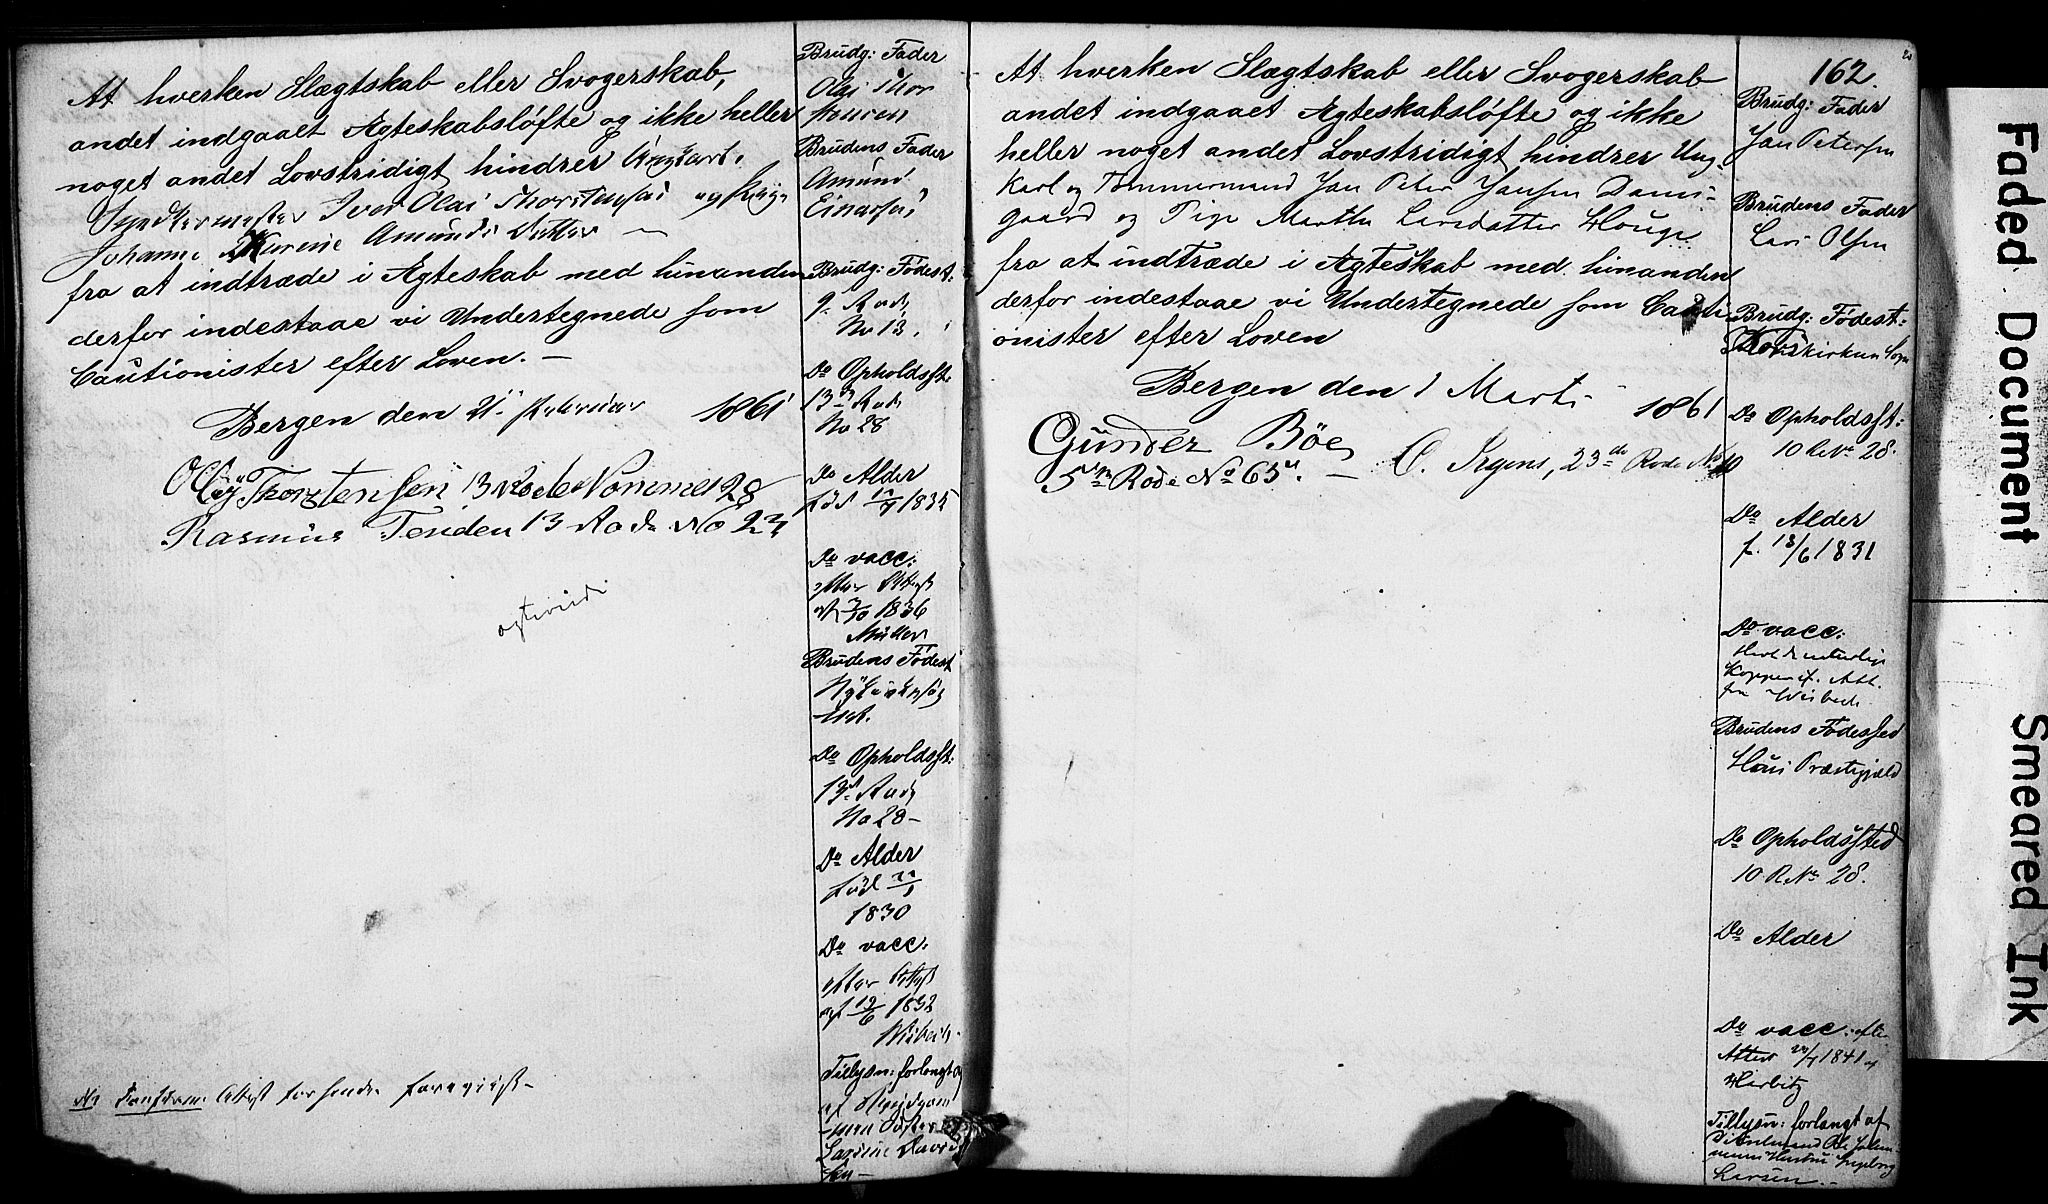 At hverken Slægtskab eller Svogerskab,
andet indgaaet Ægteskabsløfte og ikke heller
noget andet Lovstridigt hindrer Ungkarl
Iver Olai Thorstensen og Pige
Johanne Karine Amunds Datter
fra at indtræde i Ægteskab med hinanden
derfor indestaae vi Undertegnede som
Cautionister efter Loven. —
Bergen den 21 Februar 1861
Olaÿ Thorstensen 13 Rode Nommer 28
Rasmus 13 Rode No 23
Attest
Brudg: Fader
Olai Thor
stensen
Brudens Fader
Amund
Einarsen
Brudg: Fødest:
9. Rode
No 13.
Do Opholdsst:
13de Rode
No 28
Do Alder
fød 1835
Do vacc:
efter Attest
af 1836
Müller
Brudens Fødest
Do Opholdsst:
13de Rode
No 28 —
Do Alder
fød
1830
Do vacc:
efter Attest
af 12/6 1832
Wisbech
Tillysn: forlangt
af
162.
At hverken Slægtskab eller Svogerskab
andet indgaaet Ægteskabsløfte og ikke
heller noget andet Lovstridigt hindrer Ung
Karl og Tømmermand Jan Peter Jansen Dams-
gaard og Pige Martha Larsdatter Houge
fra at indtræde i Ægteskab med hinanden
derfor indestaae vi Undertegnede som Cauti
onister efter Loven
Bergen den 1 Marts 1861
Gunder Böe O. Irgens, 23de Rode No 10
5te Rode No 65.
Brudg: Fader
Jan Petersen
Brudens Fader
Lars Olsen
Brudg: Fødest:
Korskirkens Sogn
Do Opholdsst:
10 R No 28.
Do Alder
f. 18/6 1831
Do vacc:
Havt de naturlige
Kopper if. Att.
fra Wisbech
Brudens Fødested
Hous Præstegjæld
Do Opholdssted
10 R No 28.
Do Alder
Do vacc: efter
Attest 1841 af
Harbitz
Tillysn: forlangt af
Hustru Ingeborg
Larsen. —
Faded Document
Smeared Ink